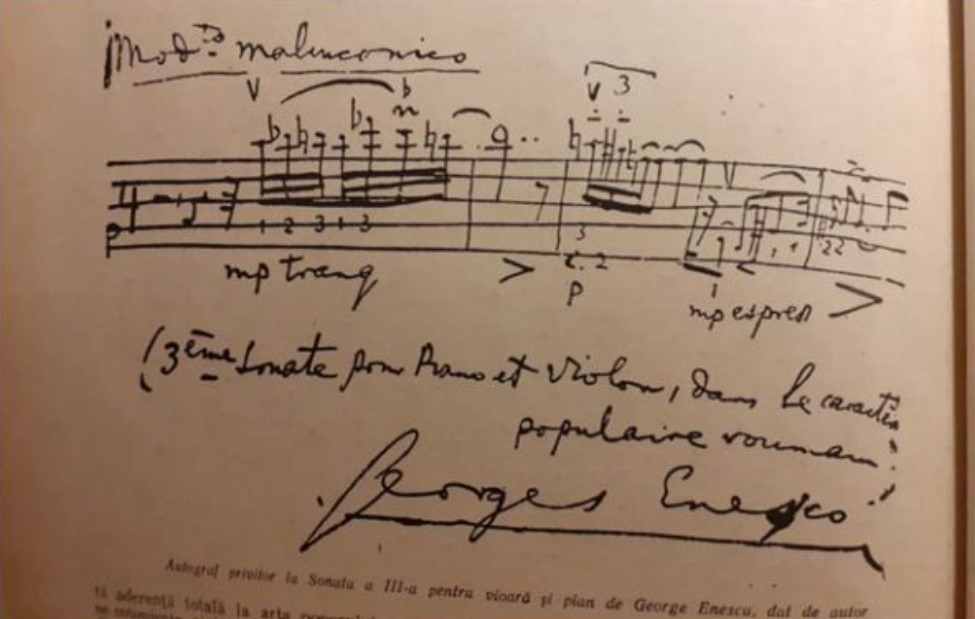 Modto malinconico
mp tranq
p
mp espress
(3ème Sonate pour Piano et Violon, dans le caractère
populaire roumain)
Georges Enesco
Autograf privitor la Sonata a III-a pentru vioară și pian de George Enescu, dat de autor
tă aderență totală la arta